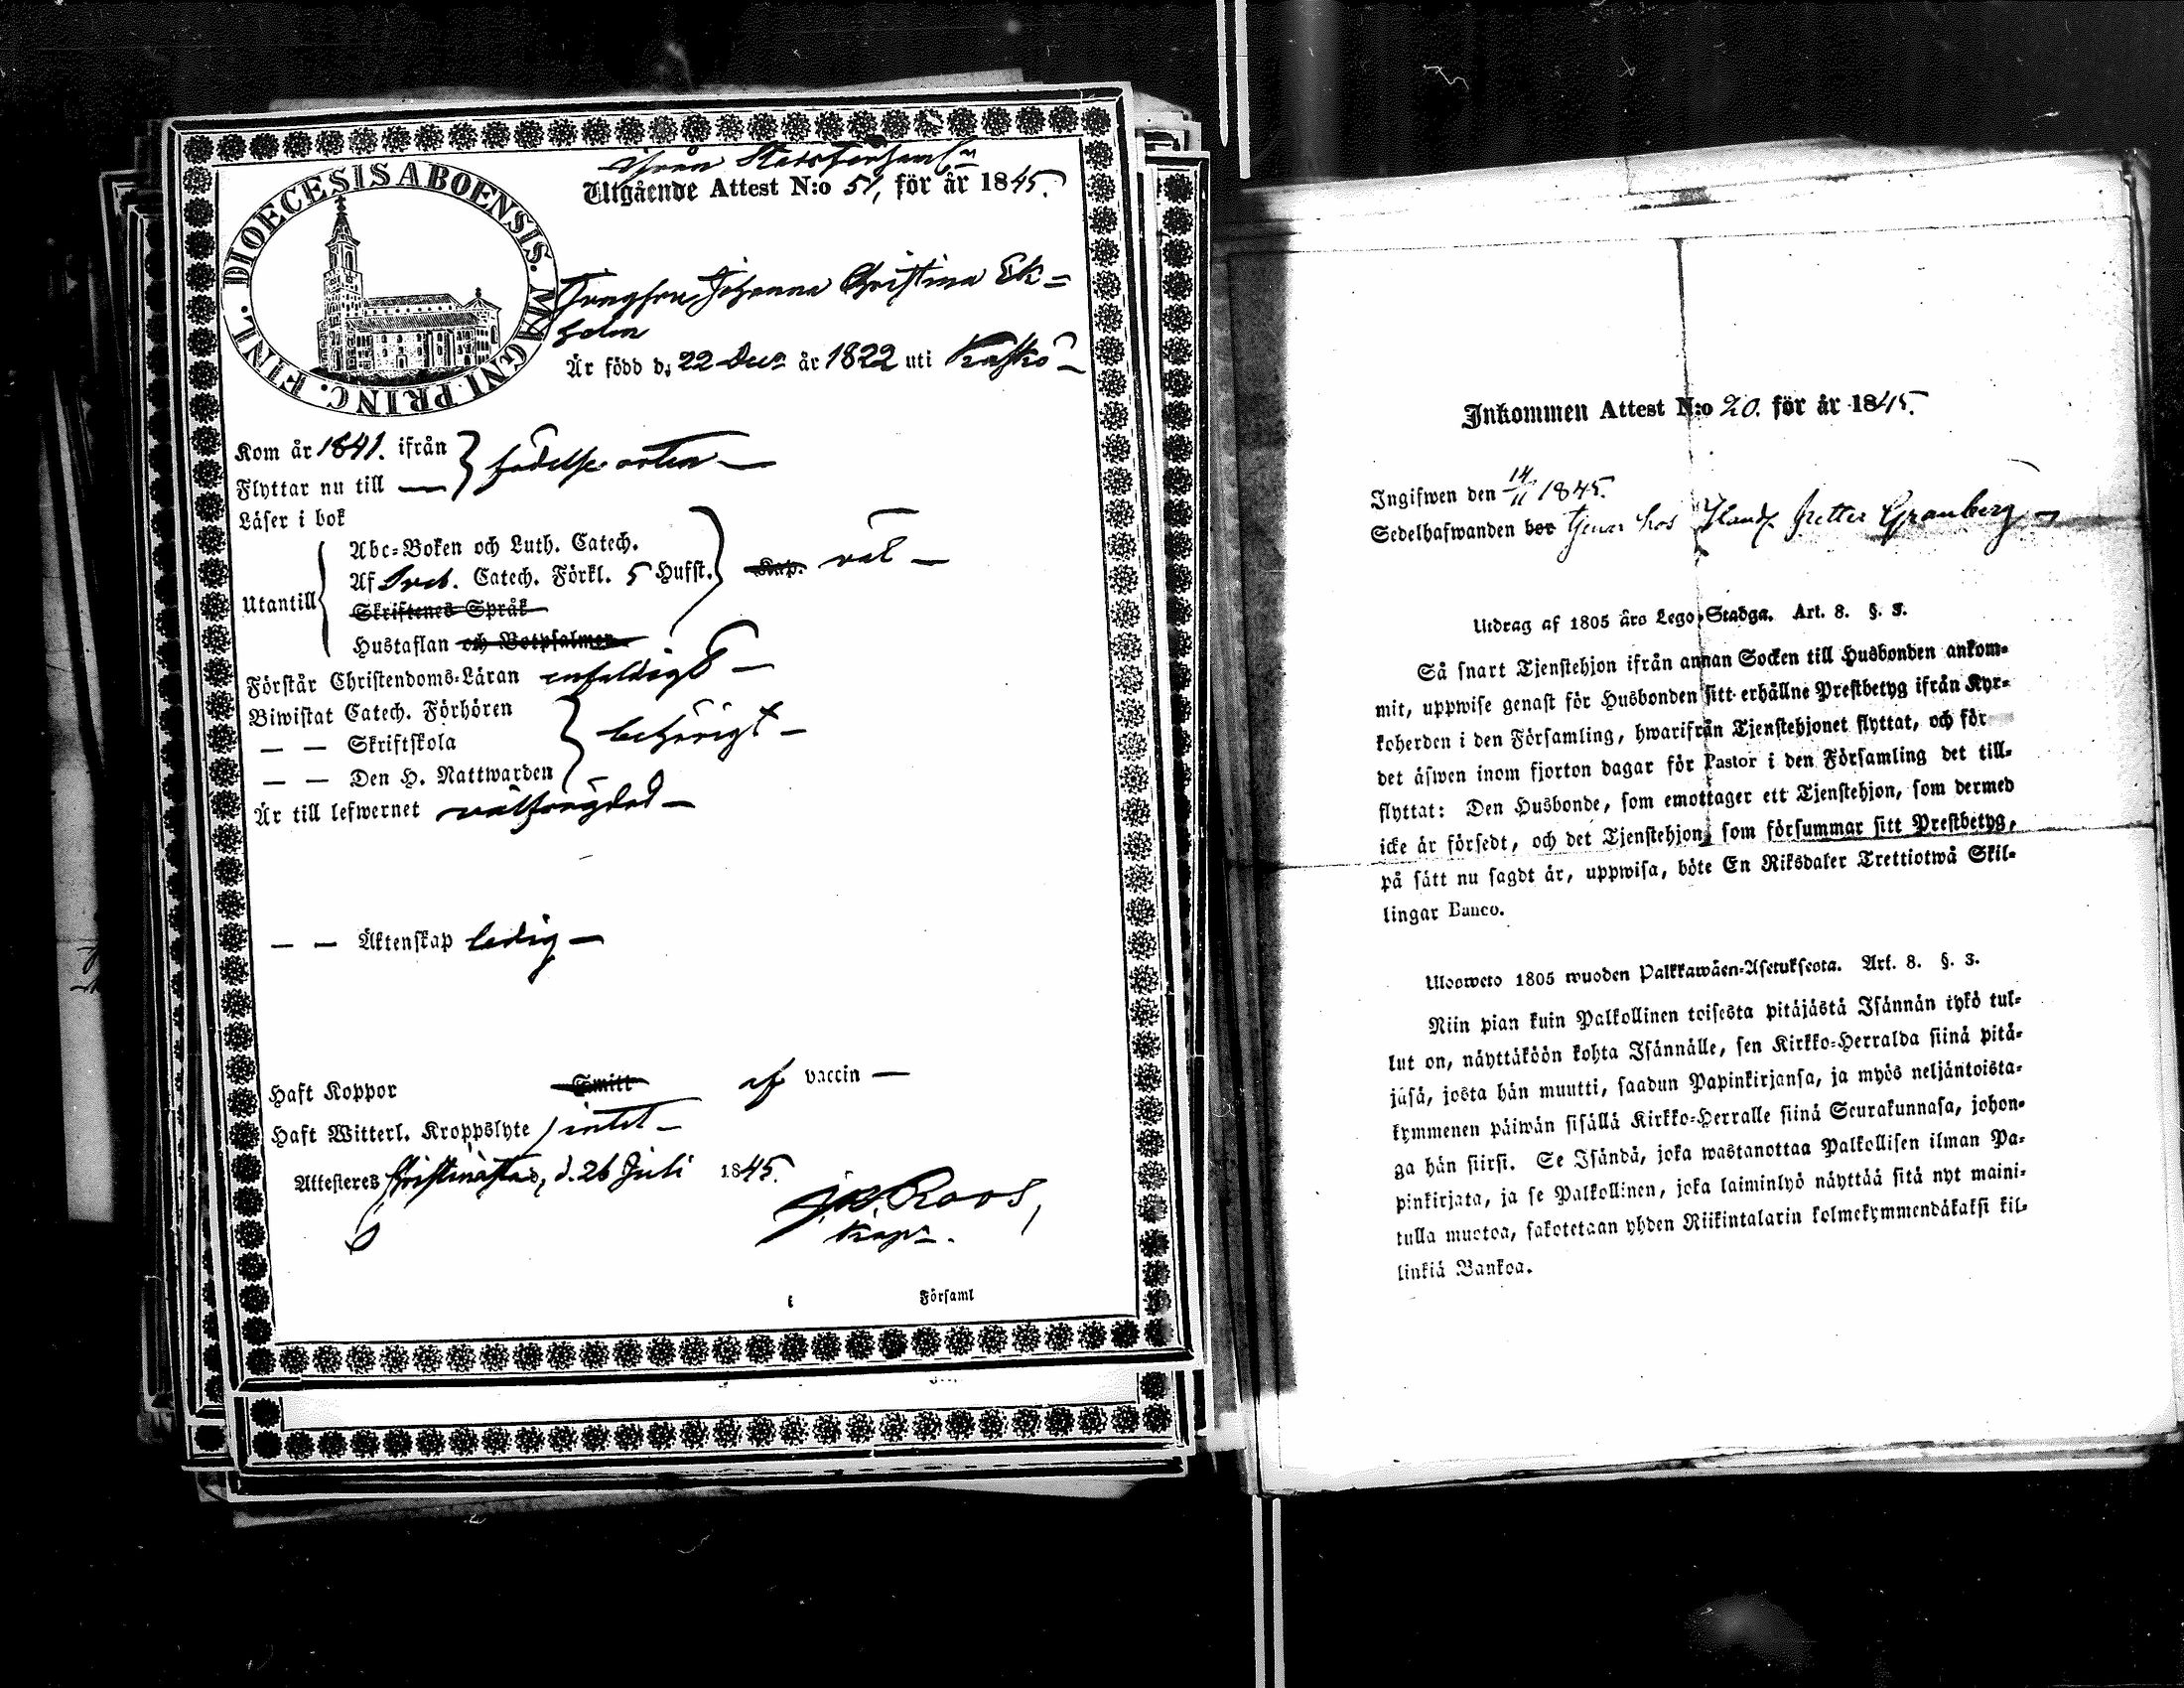 ifrån Stadsförsaml:n
Utgående Attest N:o 51, för år 1845.
DIOECESIS ABOENSIS. MAGNI PRINC. FINL.
Jungfru Johanna Christina Ek=
holm
Är född d; 22 Decr år 1822 uti Kaskö
Kom år 1841. ifrån } födelse orten
Flyttar nu till —
Läser i bok
Abc=Boken och Luth. Catech.
Utantill { Af Sveb. Catech. Förkl. 5 Hufst. } Kap. väl
Skriftenes Språk
Hustaflan och Botpsalmen
Förstår Christendoms=Läran enfaldigt
Biwistat Catech. Förhören
— — Skriftskola } behörigt
— — Den H. Nattwarden
Är till lefwernet välfrägdad
— — Äktenskap ledig
Haft Koppor Smitt af vaccin
Haft Witterl. Kroppslyte intet
Attesteres Christinæstad, d. 26 Juli 1845.
Roos,
Kapn.
i Församl
Inkommen Attest N:o 20. för år 1845.
Ingifwen den 14/11 1845.
Sedelhafwanden bor tjenar hos Handl. Petter Granberg
Utdrag af 1805 års Lego=Stadga. Art. 8. §. 3.
Så snart Tjenstehjon ifrån annan Socken till Husbonden ankom=
mit, uppwise genast för Husbonden sitt erhållne Prestbetyg ifrån Kyr=
koherden i den Församling, hwarifrån Tjenstehjonet flyttat, och för
det äfwen inom fjorton dagar för Pastor i den Församling det till=
flyttat: Den Husbonde, som emottager ett Tjenstehjon, som dermed
icke är försedt, och det Tjenstehjon, som försummar sitt Prestbetyg,
på sätt nu sagdt är, uppwisa, böte En Riksdaler Trettiotwå Skil=
lingar Banco.
Ulosweto 1805 wuoden Palkkawäen=Asetuksesta. Art. 8. §. 3.
Niin pian kuin Palkollinen toisesta pitäjästä Isännän tykö tul=
lut on, näyttäköön kohta Isännälle, sen Kirkko=Herralda siinä pitä=
jäsä, josta hän muutti, saadun Papinkirjansa, ja myös neljäntoista=
kymmenen päiwän sisällä Kirkko=Herralle siinä Seurakunnasa, johon=
ga hän siirsi. Se Isändä, joka wastanottaa Palkollisen ilman Pa=
pinkirjata, ja se Palkollinen, joka laiminlyö näyttää sitä nyt maini=
tulla muotoa, sakotetaan yhden Riikintalarin kolmekymmendäkaksi kil=
linkiä Bankoa.